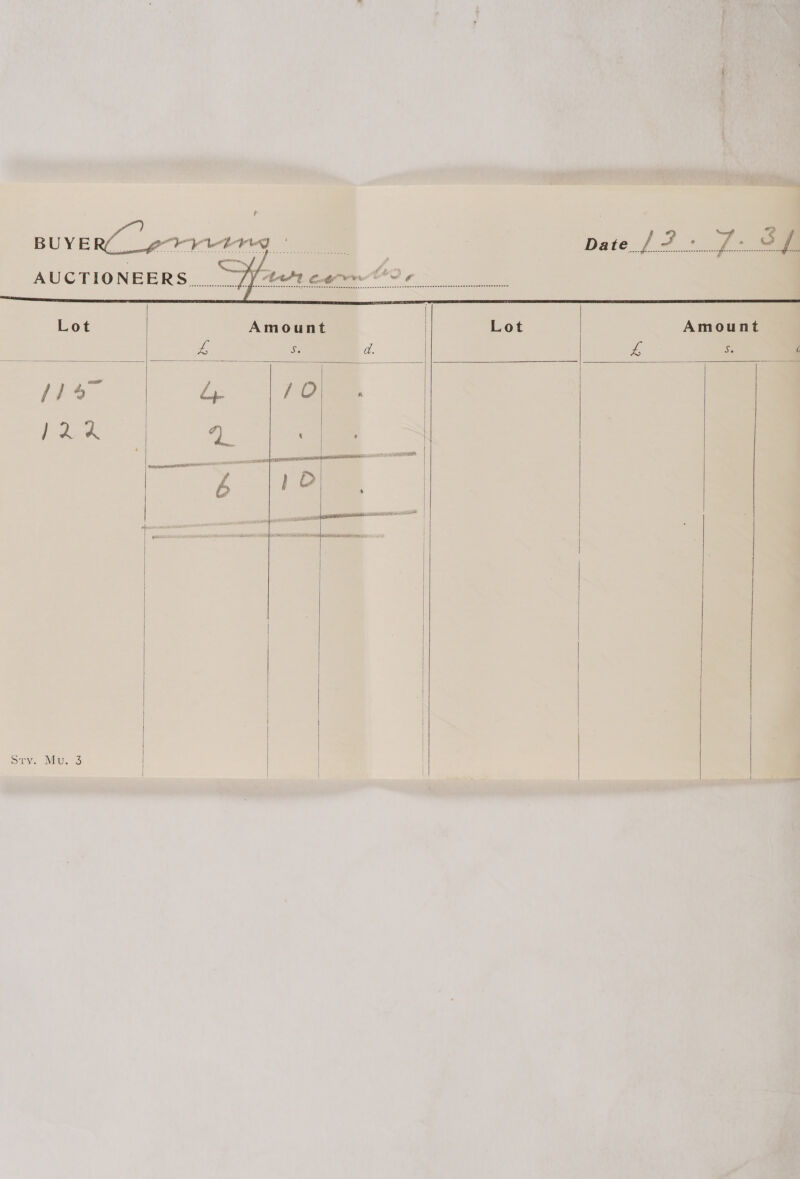 BUYER Date 13 . 7 . 31
AUCTIONEERS
Lot Amount Lot Amount
£ s. d. £ s.
115 4 10 .
122 2 . .
6 10 .
Sty. Mu. 3